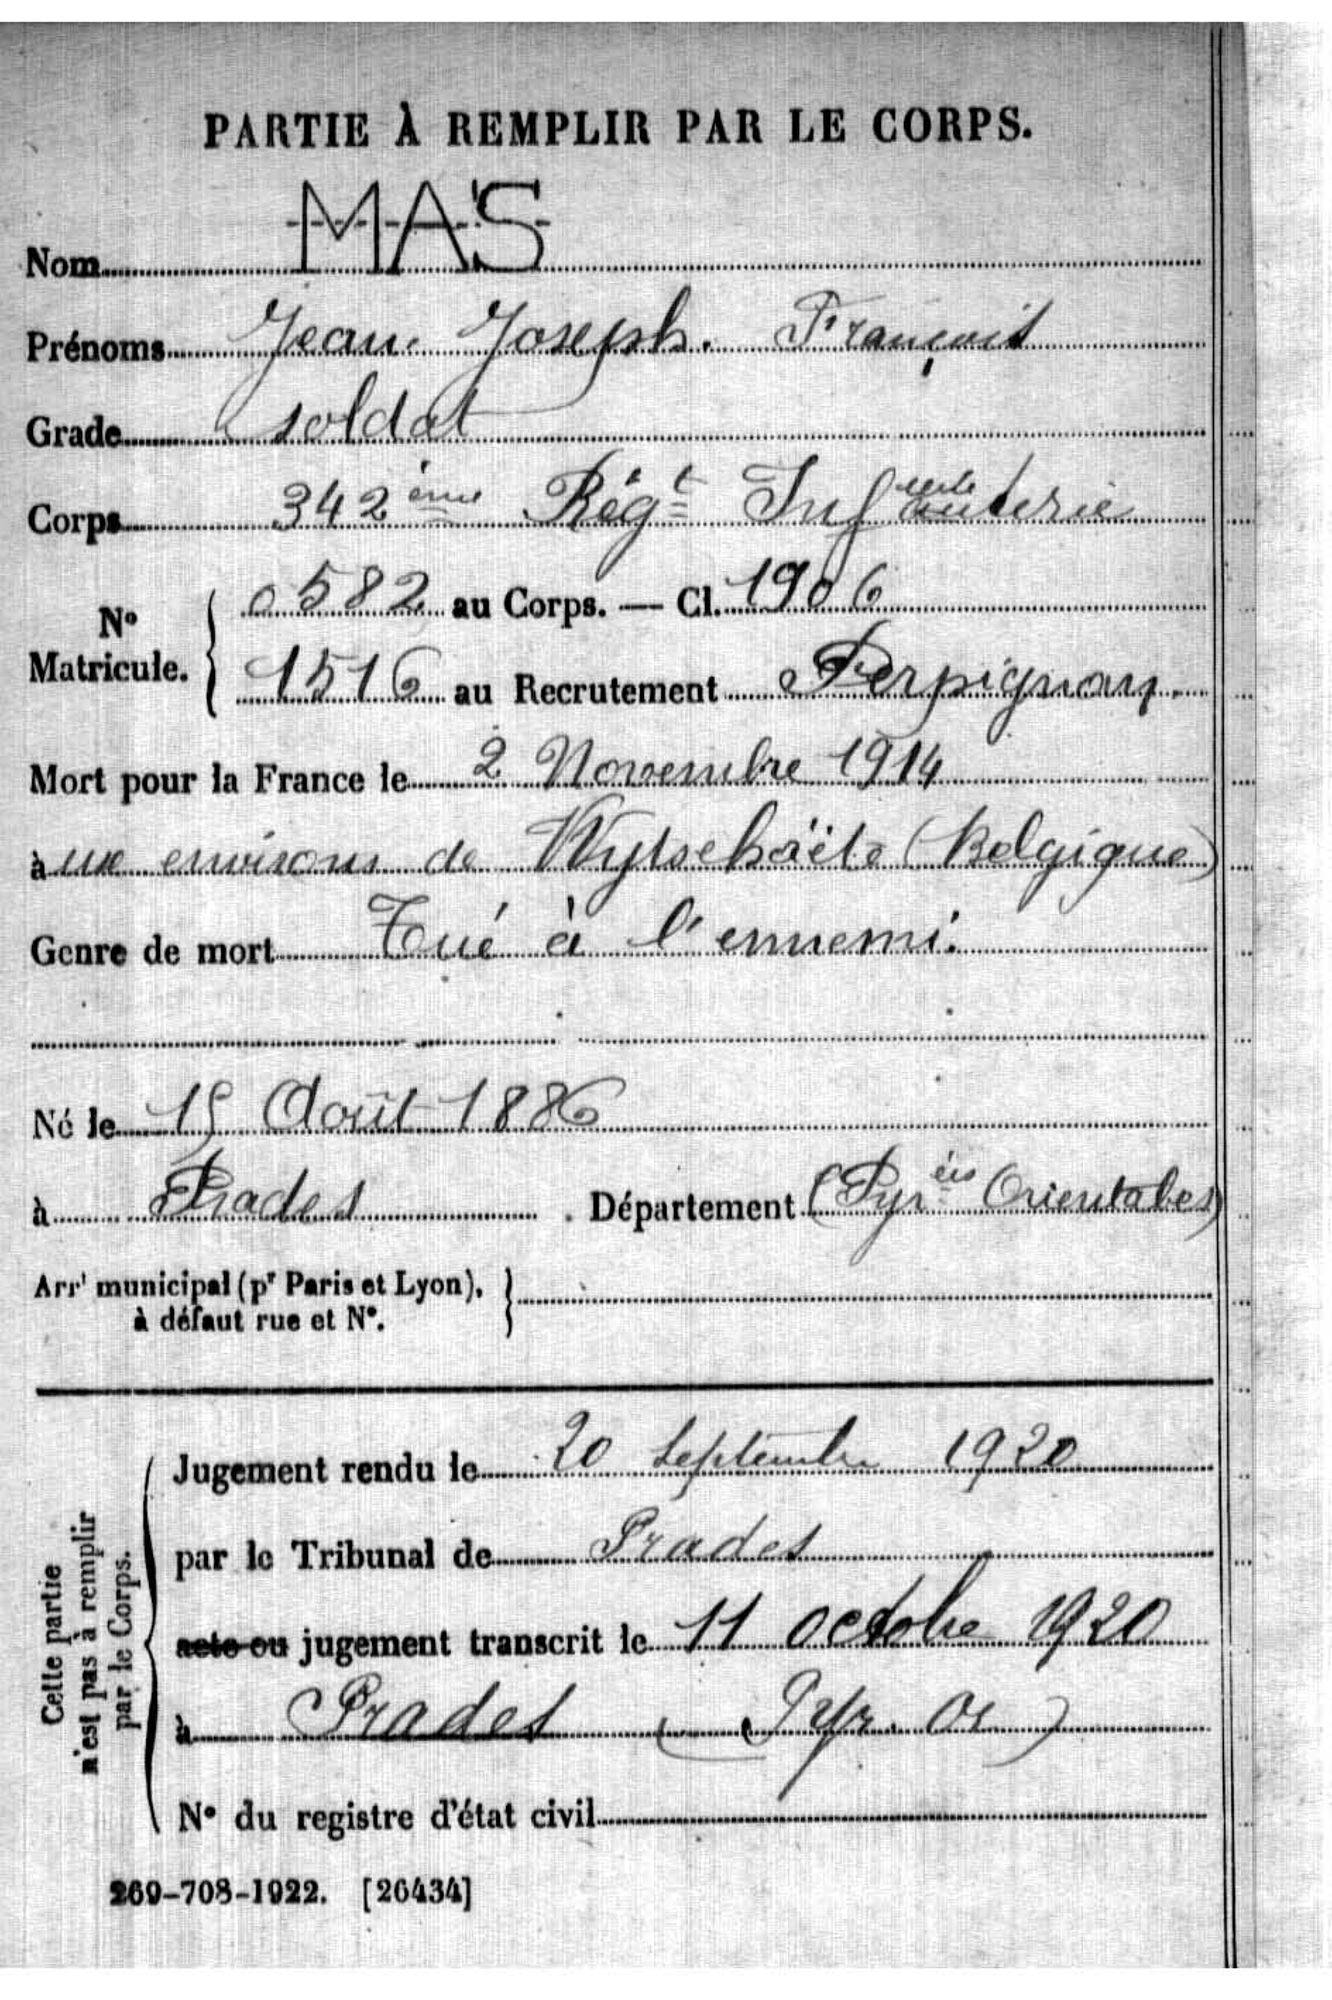 PARTIE À REMPLIR PAR LE CORPS.
Nom MAS
Prénoms Jean Joseph. François
Grade soldat
Corps 342ème Régt Infanterie
N° Matricule. { 0582 au Corps. — Cl. 1906
1516 au Recrutement Perpignan.
Mort pour la France le 2 Novembre 1914
à ux environs de Wytschaëte (Belgique)
Genre de mort Tué à l'ennemi.
Né le 15 Août 1886
à Prades Département (Pyrées Orientales)
Arrt municipal (pr Paris et Lyon), }
à défaut rue et N°.
Cette partie n'est pas à remplir par le Corps.
Jugement rendu le 20 Septembre 1920
par le Tribunal de Prades
acte ou jugement transcrit le 11 octobre 1920
à Prades (Pyr. Or)
N° du registre d'état civil
269-708-1922. [26434]